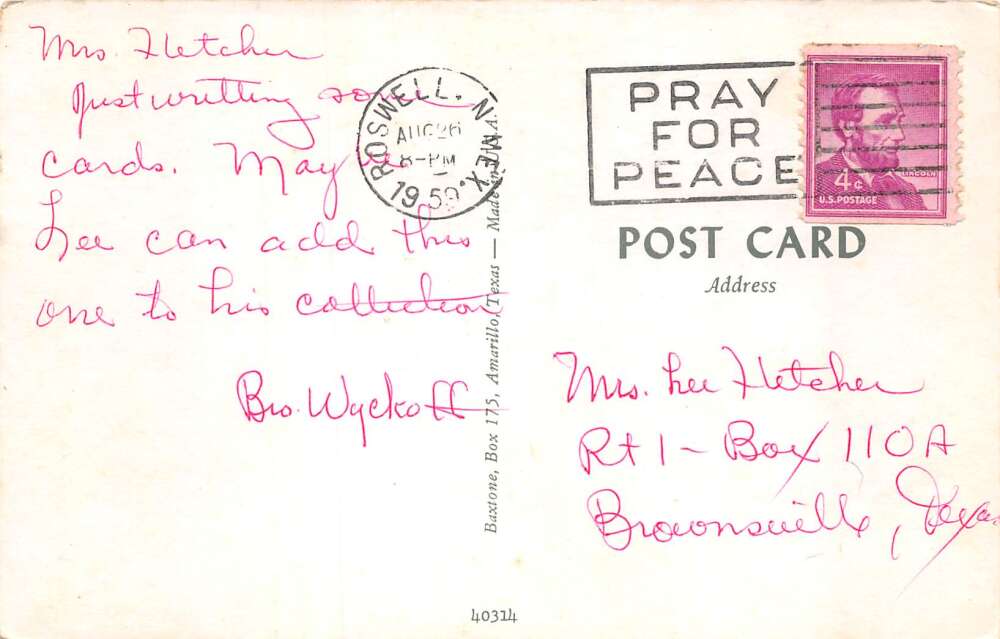 Mrs. Fletcher
Just writting some
cards. May be
Lee can add this
one to his collection
Bro. Wyckoff
ROSWELL. N MEX.
AUG 26
8-PM
1959
PRAY
FOR
PEACE
LINCOLN
4¢
U.S. POSTAGE
POST CARD
Address
Mrs. Lee Fletcher
Rt 1 - Box 110A
Brownsville, Texas
Baxtone, Box 175, Amarillo, Texas — Made in U.S.A.
40314